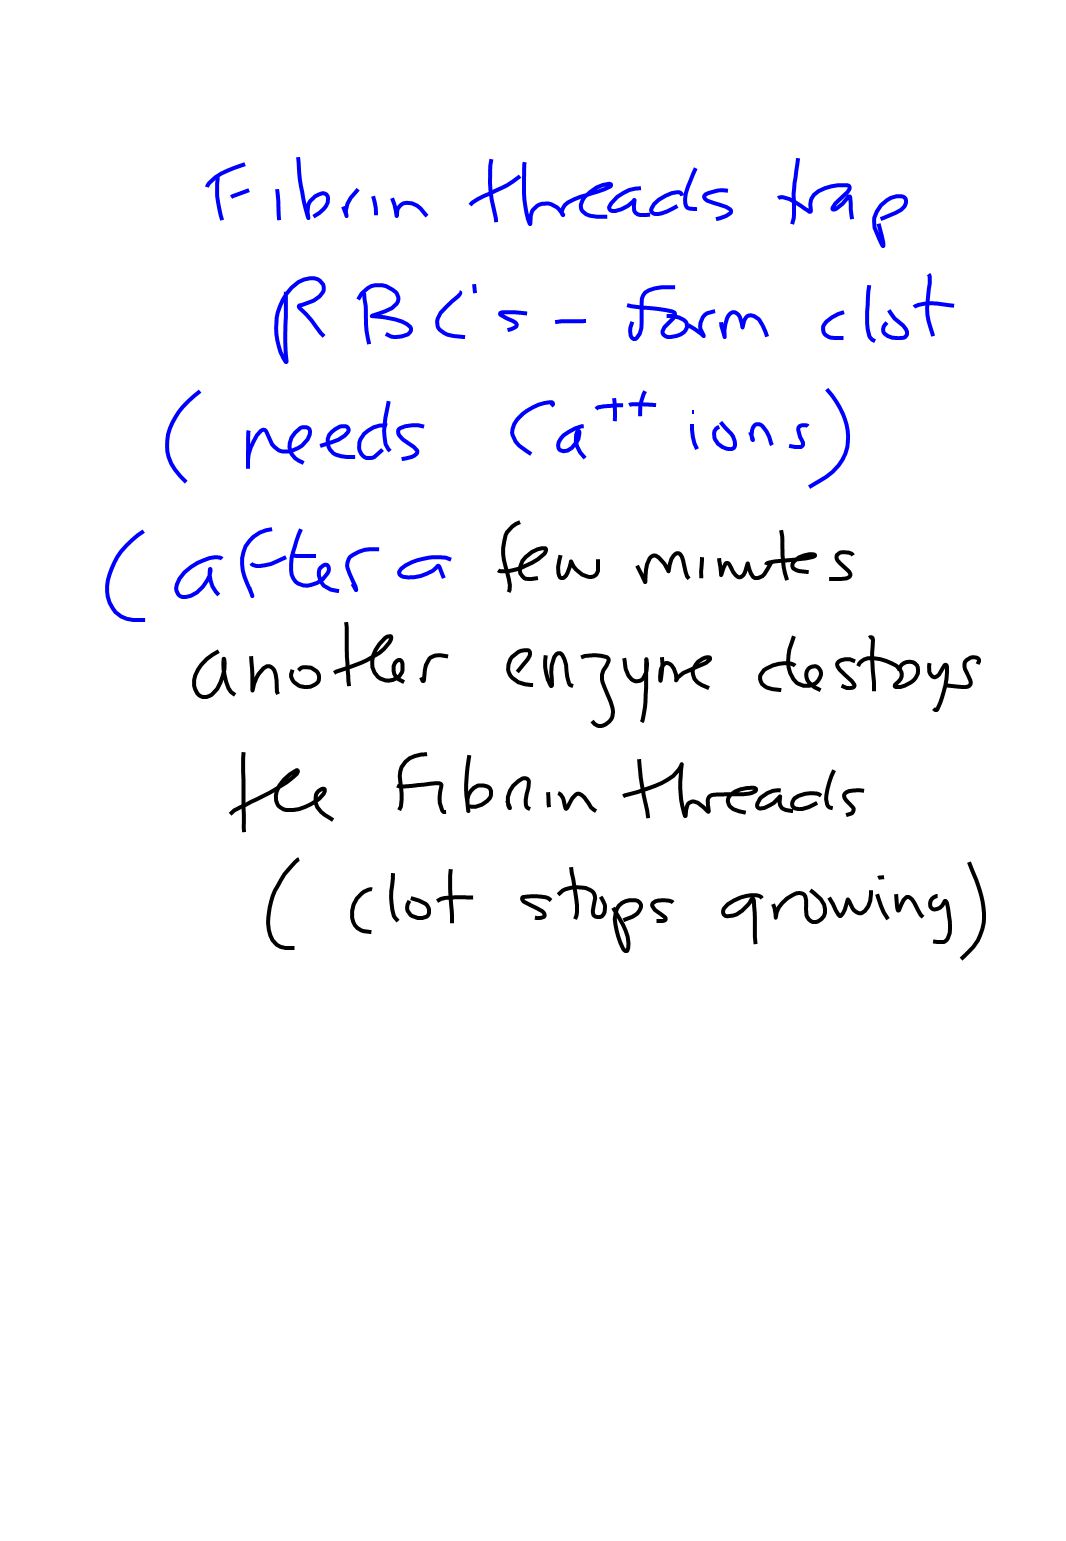 Fibrin threads trap
RBC's - form clot
(needs Ca⁺⁺ ions)
(after a few minutes
another enzyme destoys
the fibrin threads
(clot stops growing)